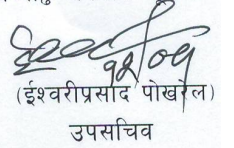 (ईश्वरीप्रसाद पोखरेल)
उपसचिव